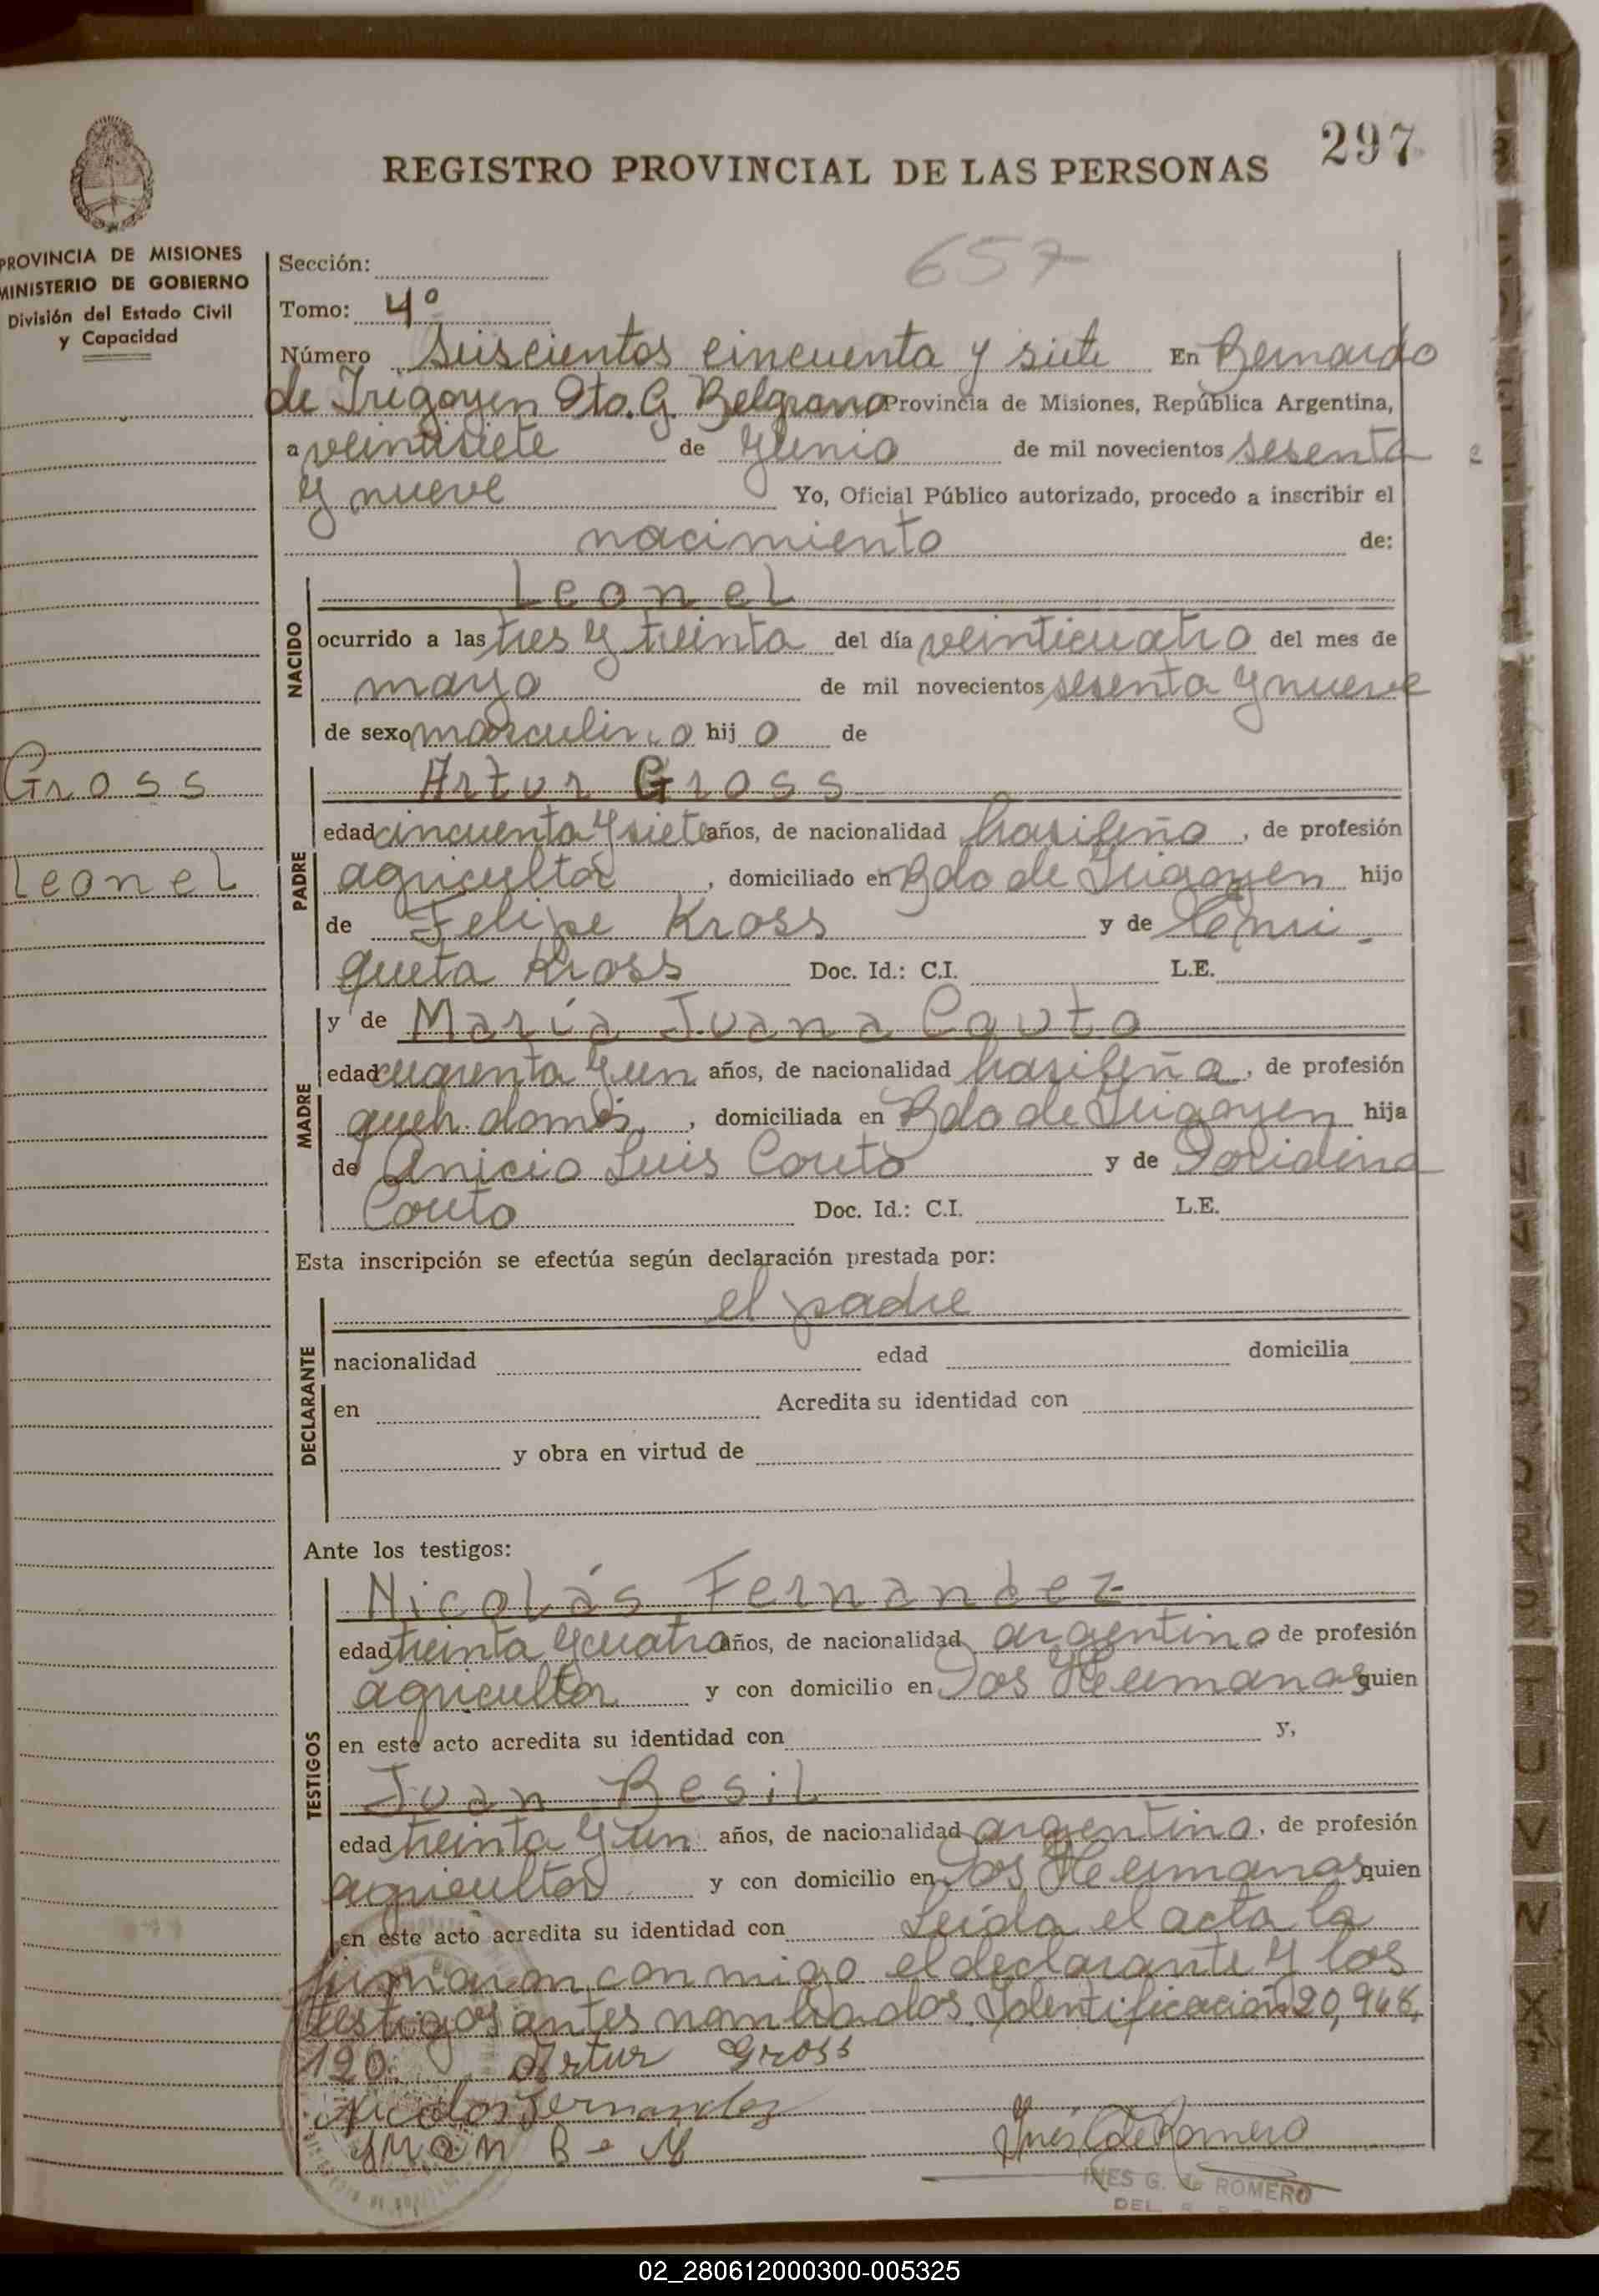 297
REGISTRO PROVINCIAL DE LAS PERSONAS
PROVINCIA DE MISIONES
MINISTERIO DE GOBIERNO
División del Estado Civil
y Capacidad
657
Sección:
Tomo: 4º
Número Seiscientos cincuenta y siete En Bernardo
de Irigoyen Dto. G. Belgrano Provincia de Misiones, República Argentina,
a veintisiete de Junio de mil novecientos sesenta
y nueve Yo, Oficial Público autorizado, procedo a inscribir el
nacimiento de:
NACIDO
Leonel
ocurrido a las tres y treinta del día veinticuatro del mes de
mayo de mil novecientos sesenta y nueve
de sexo masculino hijo de
Gross
Leonel
PADRE
Artur Gross
edad cincuenta y siete años, de nacionalidad brasileño, de profesión
agricultor, domiciliado en Bdo de Irigoyen hijo
de Felipe Kross y de Enri-
queta Kross Doc. Id.: C.I. L.E.
MADRE
y de María Juana Couto
edad cuarenta y un años, de nacionalidad brasileña, de profesión
queh. domés., domiciliada en Bdo de Irigoyen hija
de Anicio Luis Couto y de
Couto Doc. Id.: C.I. L.E.
Esta inscripción se efectúa según declaración prestada por:
DECLARANTE
el padre
nacionalidad edad domicilia
en Acredita su identidad con
y obra en virtud de
Ante los testigos:
TESTIGOS
Nicolás Fernandez
edad treinta y cuatro años, de nacionalidad argentino de profesión
agricultor y con domicilio en Dos Hermanas quien
en este acto acredita su identidad con y,
Juan Besil
edad treinta y un años, de nacionalidad argentino, de profesión
agricultor y con domicilio en Dos Hermanas quien
en este acto acredita su identidad con Leída el acta la
firmaron conmigo el declarante y los
testigos antes nombrados. Identificación 20,948,
120. Artur Gross
Nicolas Fernandez
Juan
Ines G de Romero
INES G. de ROMERO
DEL.
02_280612000300-005325